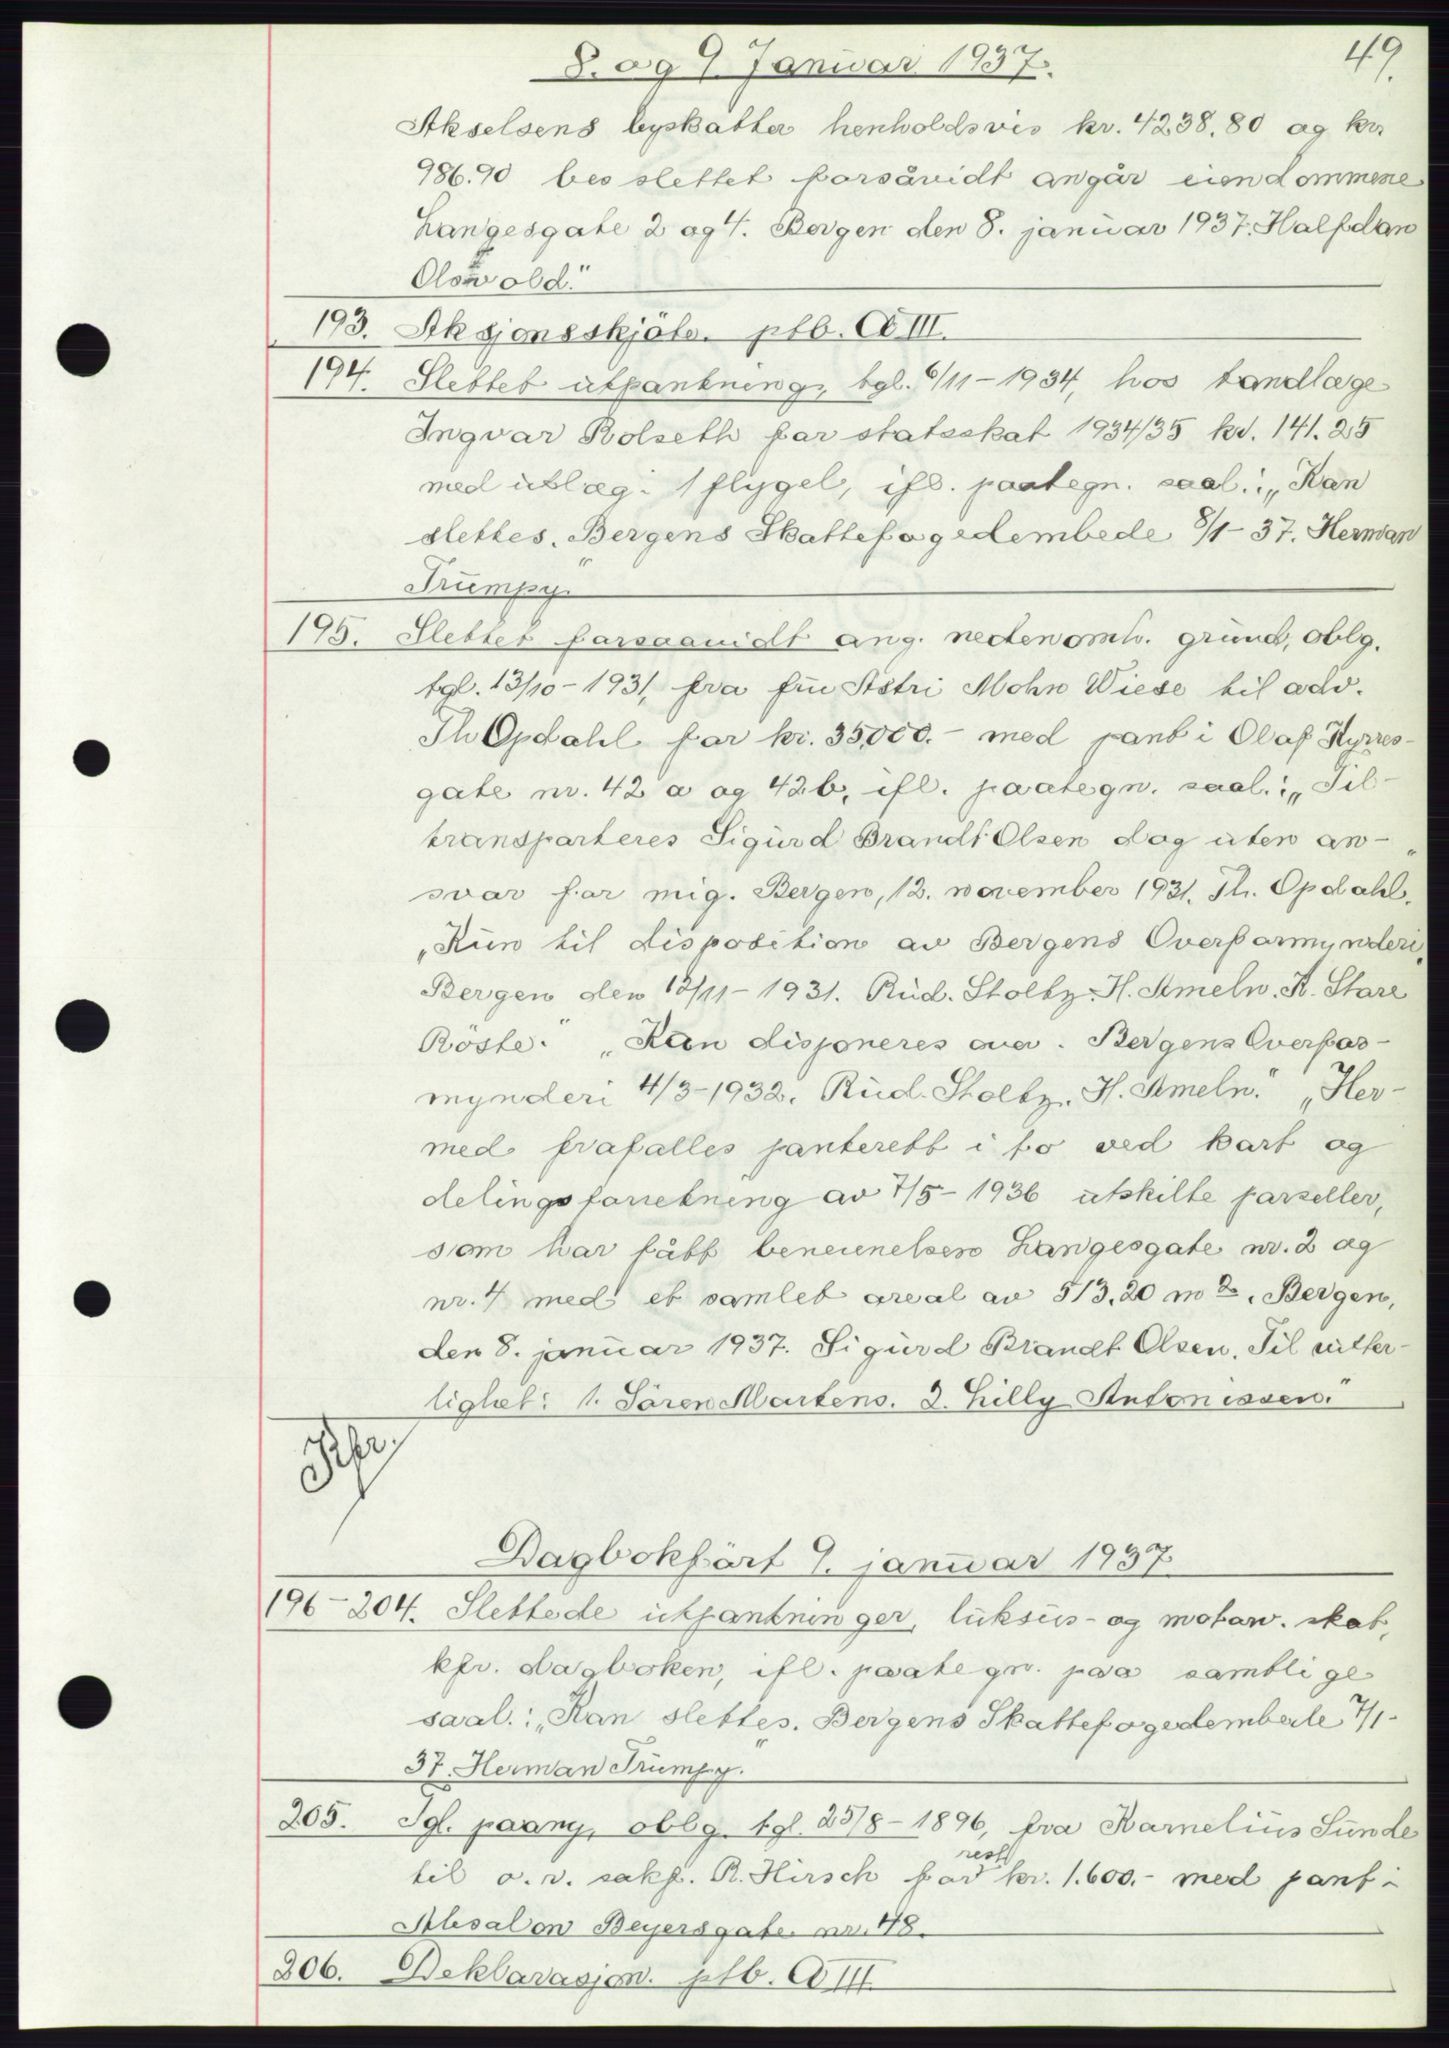 8. og 9. Januar 1937.
49.
Akselsens byskatter henholdsvis kr. 4238.80 og kr.
986.90 bes slettet forsåvidt angår eiendommene
Langesgate 2 og 4. Bergen den 8. januar 1937. Halfdan
193. Aksjonsskjöte. ptb. A III.
194. Slettet utpantning, tgl. 6/11-1934, hos tandlæge
Ingvar Rolseth for statsskat 1934/35 kr. 141.25
med utlæg i 1 flygel, ifl. paategn. saal.: „Kan
slettes. Bergens Skattefogedembede 8/1-37. Herman
Trumpy."
195. Slettet forsaavidt ang. nedenomh. grund, oblg.
tgl. 13/10-1931, fra fru Astri Mohn Wiese til adv.
Th Opdahl for kr. 35,000.- med pant i Olaf Kyrres-
gate nr. 42 a og 42b, ifl. paategn. saal.: „Til-
transporteres Sigurd Brandt Olsen dog uten an-
svar for mig. Bergen, 12. november 1931. Th. Opdahl."
„Kun til disposition av Bergens Overformynderi.
Bergen den 13/11-1931. Rud. Stoltz. H. Ameln. K. Stare
Röste." „Kan disponeres over. Bergens Overfor-
mynderi 4/3-1932. Rud. Stoltz. H. Ameln." „Her-
med frafalles panterett i to ved kart og
delingsforretning av 7/5-1936 utskilte parseller,
som har fått benevnelsen Langesgate nr. 2 og
nr. 4 med et samlet areal av 513,20 m2. Bergen,
den 8. januar 1937. Sigurd Brandt Olsen. Til vitter-
lighet: 1. Sören Martens. 2. Lilly Antonissen."
Dagbokfört 9. januar 1937
196-204. Slettede utpantninger, luksus- og motorv. skat,
kfr. dagboken, ifl. paategn. paa samtlige
saal.: „Kan slettes. Bergens Skattefogedembede 7/1-
37. Herman Trumpy."
205. Tgl. paany, oblg. tgl. 25/8-1896, fra Kornelius Sunde
rest
til o. r. sakf. R. Hirsch for kr. 1.600.- med pant i
Absalon Beyersgate nr. 48.
206. Deklarasjon. ptb. A III